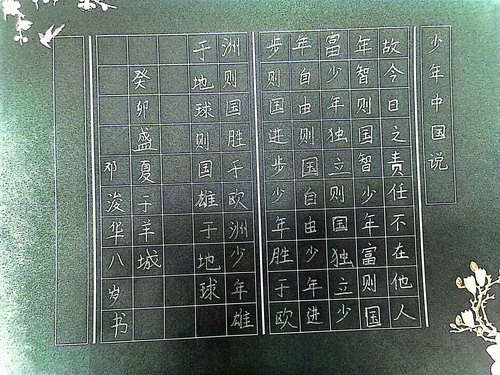 少年中国说
故今日之责任不在他人
年智则国智少年富则国
富少年独立则国独立少
年自由则国自由少年进
步则国进步少年胜于欧
洲则国胜于欧洲少年雄
于地球则国雄于地球
癸卯盛夏于羊城
邓浚华八岁书